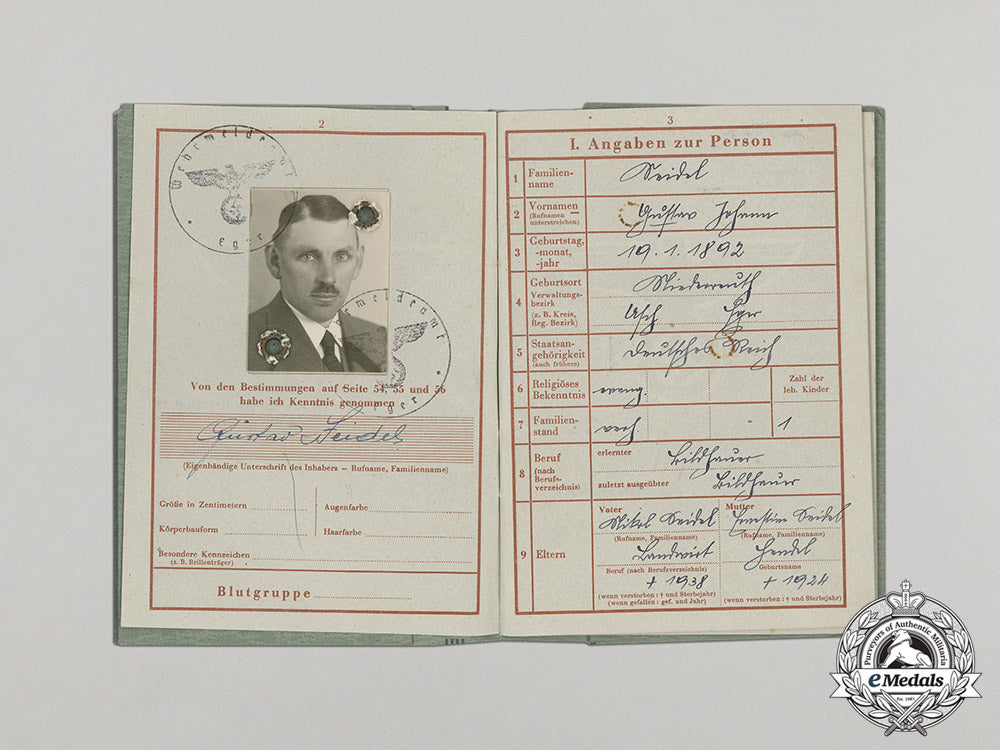 2
Wehrmeldeamt
Eger
Wehrmeldeamt
Eger
Von den Bestimmungen auf Seite 54, 55 und 56
habe ich Kenntnis genommen
Gustav Seidel
(Eigenhändige Unterschrift des Inhabers – Rufname, Familienname)
Größe in Zentimetern
Augenfarbe
Körperbauform
Haarfarbe
Besondere Kennzeichen
(z. B. Brillenträger)
Blutgruppe
3
I. Angaben zur Person
1 Familien-
name
Seidel
2 Vornamen
(Rufnamen
unterstreichen)
Gustav Johann
3 Geburtstag,
-monat,
-jahr
19.1.1892
4 Geburtsort
Verwaltungs-
bezirk
(z. B. Kreis,
Reg. Bezirk)
Niederreuth
Asch Eger
5 Staatsan-
gehörigkeit
(auch frühere)
Deutsches Reich
6 Religiöses
Bekenntnis
evang.
Zahl der
leb. Kinder
7 Familien-
stand
verh
1
8 Beruf
(nach
Berufs-
verzeichnis)
erlernter
Bildhauer
zuletzt ausgeübter
Bildhauer
9 Eltern
Vater
Nikol Seidel
(Rufname, Familienname)
Landwirt
Beruf (nach Berufsverzeichnis)
+ 1938
(wenn verstorben: † und Sterbejahr)
(wenn gefallen: gef. und Jahr)
Mutter
Ernestine Seidel
(Rufname, Familienname)
Hendel
Geburtsname
+ 1924
(wenn verstorben: † und Sterbejahr)
Purveyors of Authentic Militaria
eMedals
Est. 1981